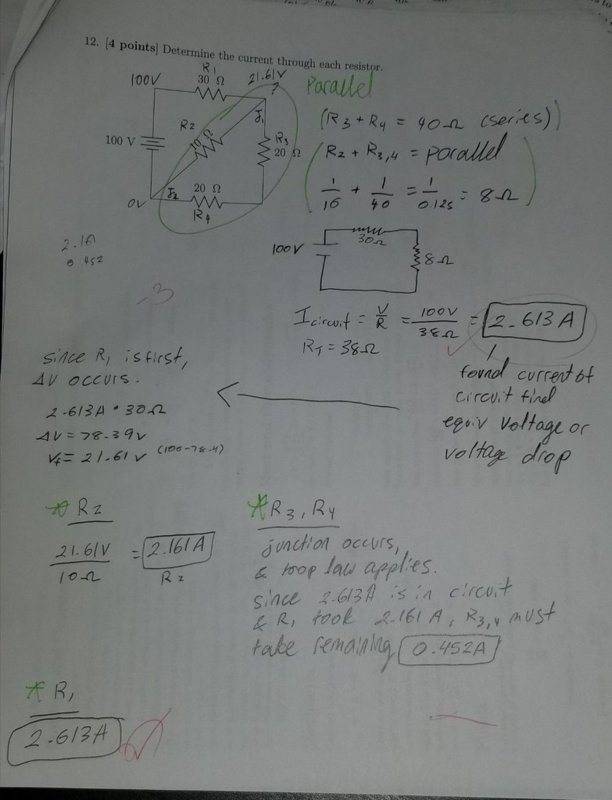 12. [4 points] Determine the current through each resistor.
100V
R1
30 Ω
21.61V
?
Parallel
100 V
R2
10 Ω
I1
R3
20 Ω
I2
20 Ω
R4
0V
(R3 + R4 = 40Ω (series))
R2 + R3,4 = parallel
1/10 + 1/40 = 1/0.125 = 8Ω
2.161
0.452
-3
100V
30Ω
8Ω
I circuit = V/R = 100V/38Ω = 2.613A
RT = 38Ω
found current of
circuit find
equiv voltage or
voltage drop
since R1 is first,
ΔV occurs.
2.613A • 30Ω
ΔV = 78.39v
Vf = 21.61v (100-78.4)
* R2
21.61V/10Ω = 2.161A
R2
* R3, R4
junction occurs,
& loop law applies.
since 2.613A is in circuit
& R1 took 2.161A, R3,4 must
take remaining 0.452A
* R1
2.613A